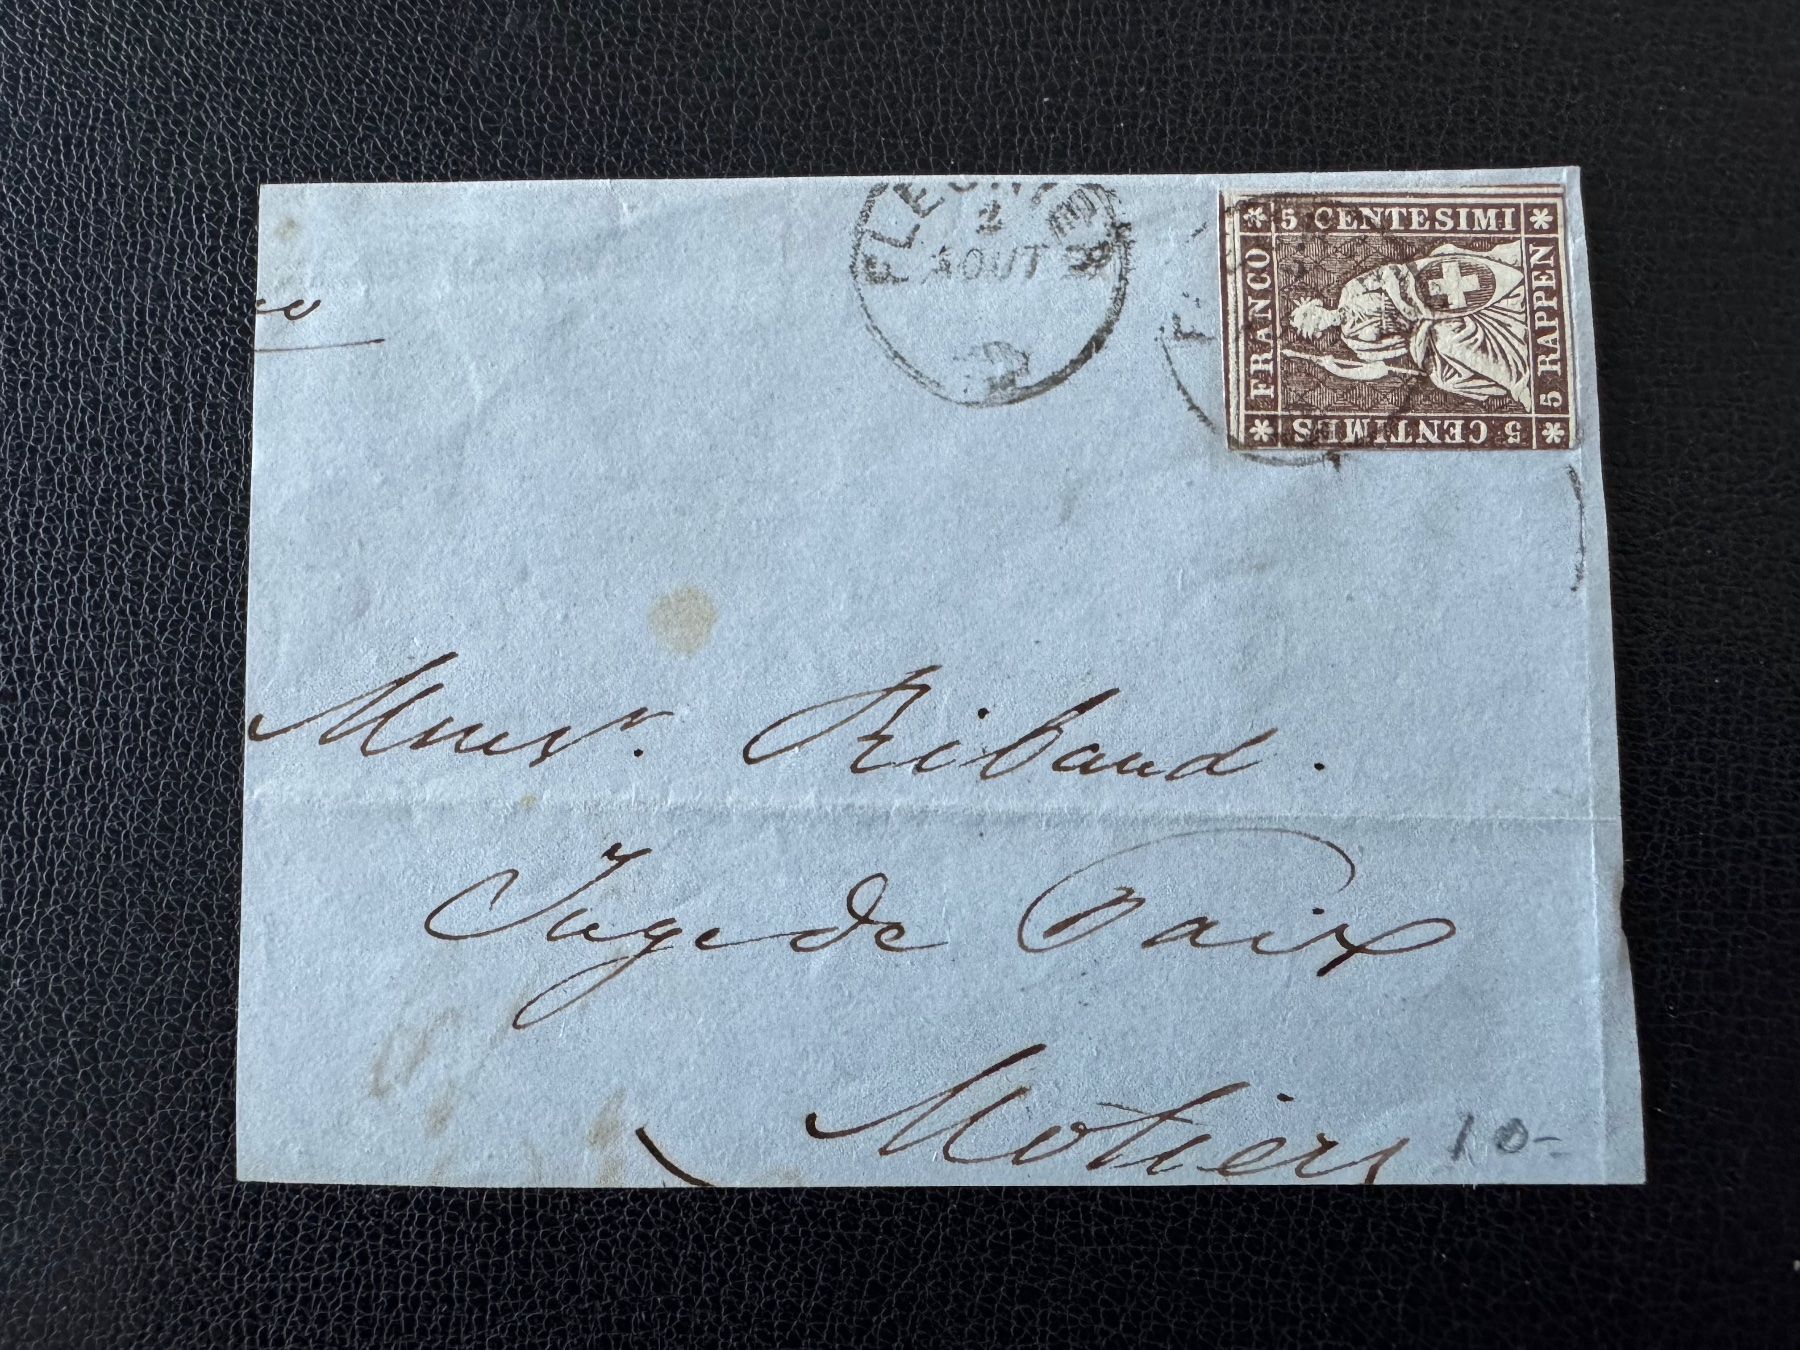 FLEURIER
2
AOUT
5 CENTESIMI
FRANCO
5 RAPPEN
5 CENTIMES
Monsr. Ribaud.
Juge de Paix
Motiers
10-